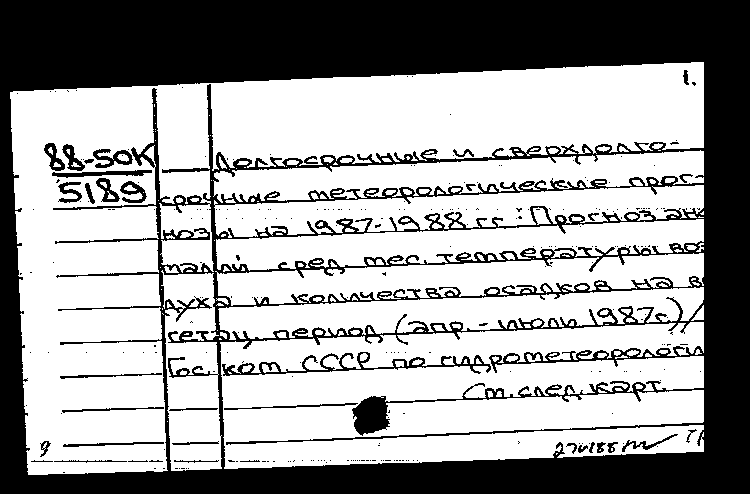 1.
88-50К Долгосрочные и сверхдолго-
5189 срочные метеорологические прог-
нозы на 1987-1988 гг.: Прогноз ано
малий сред. мес. температуры воз
духа и количества осадков на ве
гетац. период (апр. - июль 1987г.)/
Гос. ком. СССР по гидрометеорологи
См. след. карт.
9